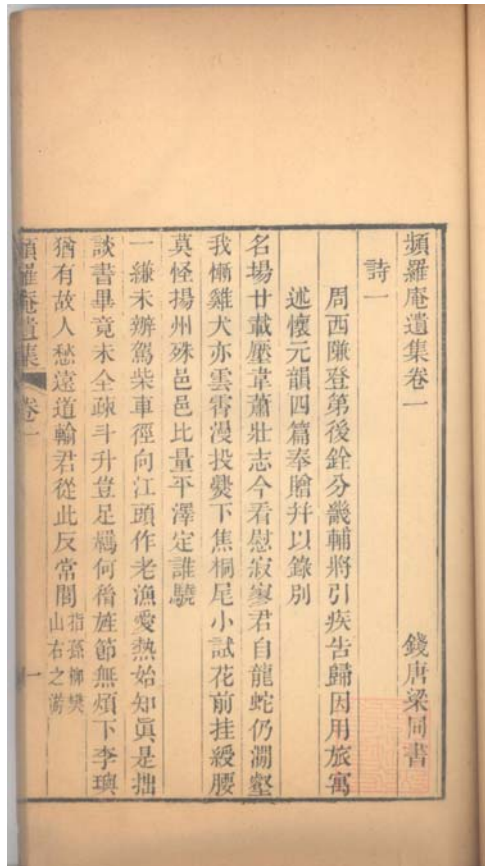 頻羅庵遺集卷一
錢唐梁同書
詩一
周西隒登第後銓分畿輔將引疾告歸因用旅寓
述懷元韻四篇奉贈幷以錄別
名塲廿載壓韋蕭壯志今看慰寂寥君自龍蛇仍澗壑
我慚雞犬亦雲霄漫投㸑下焦桐尾小試花前挂綬腰
莫怪揚州殊邑邑比量平澤定誰驍
一縑未辦駕柴車徑向江頭作老漁愛熱始知眞是拙
談書畢竟未全疎斗升豈足羈何偕旌節無煩下李璵
猶有故人愁遠道輸君從此反常閭
指孫柳樊
山右之游
頻羅庵遺集
卷一
一